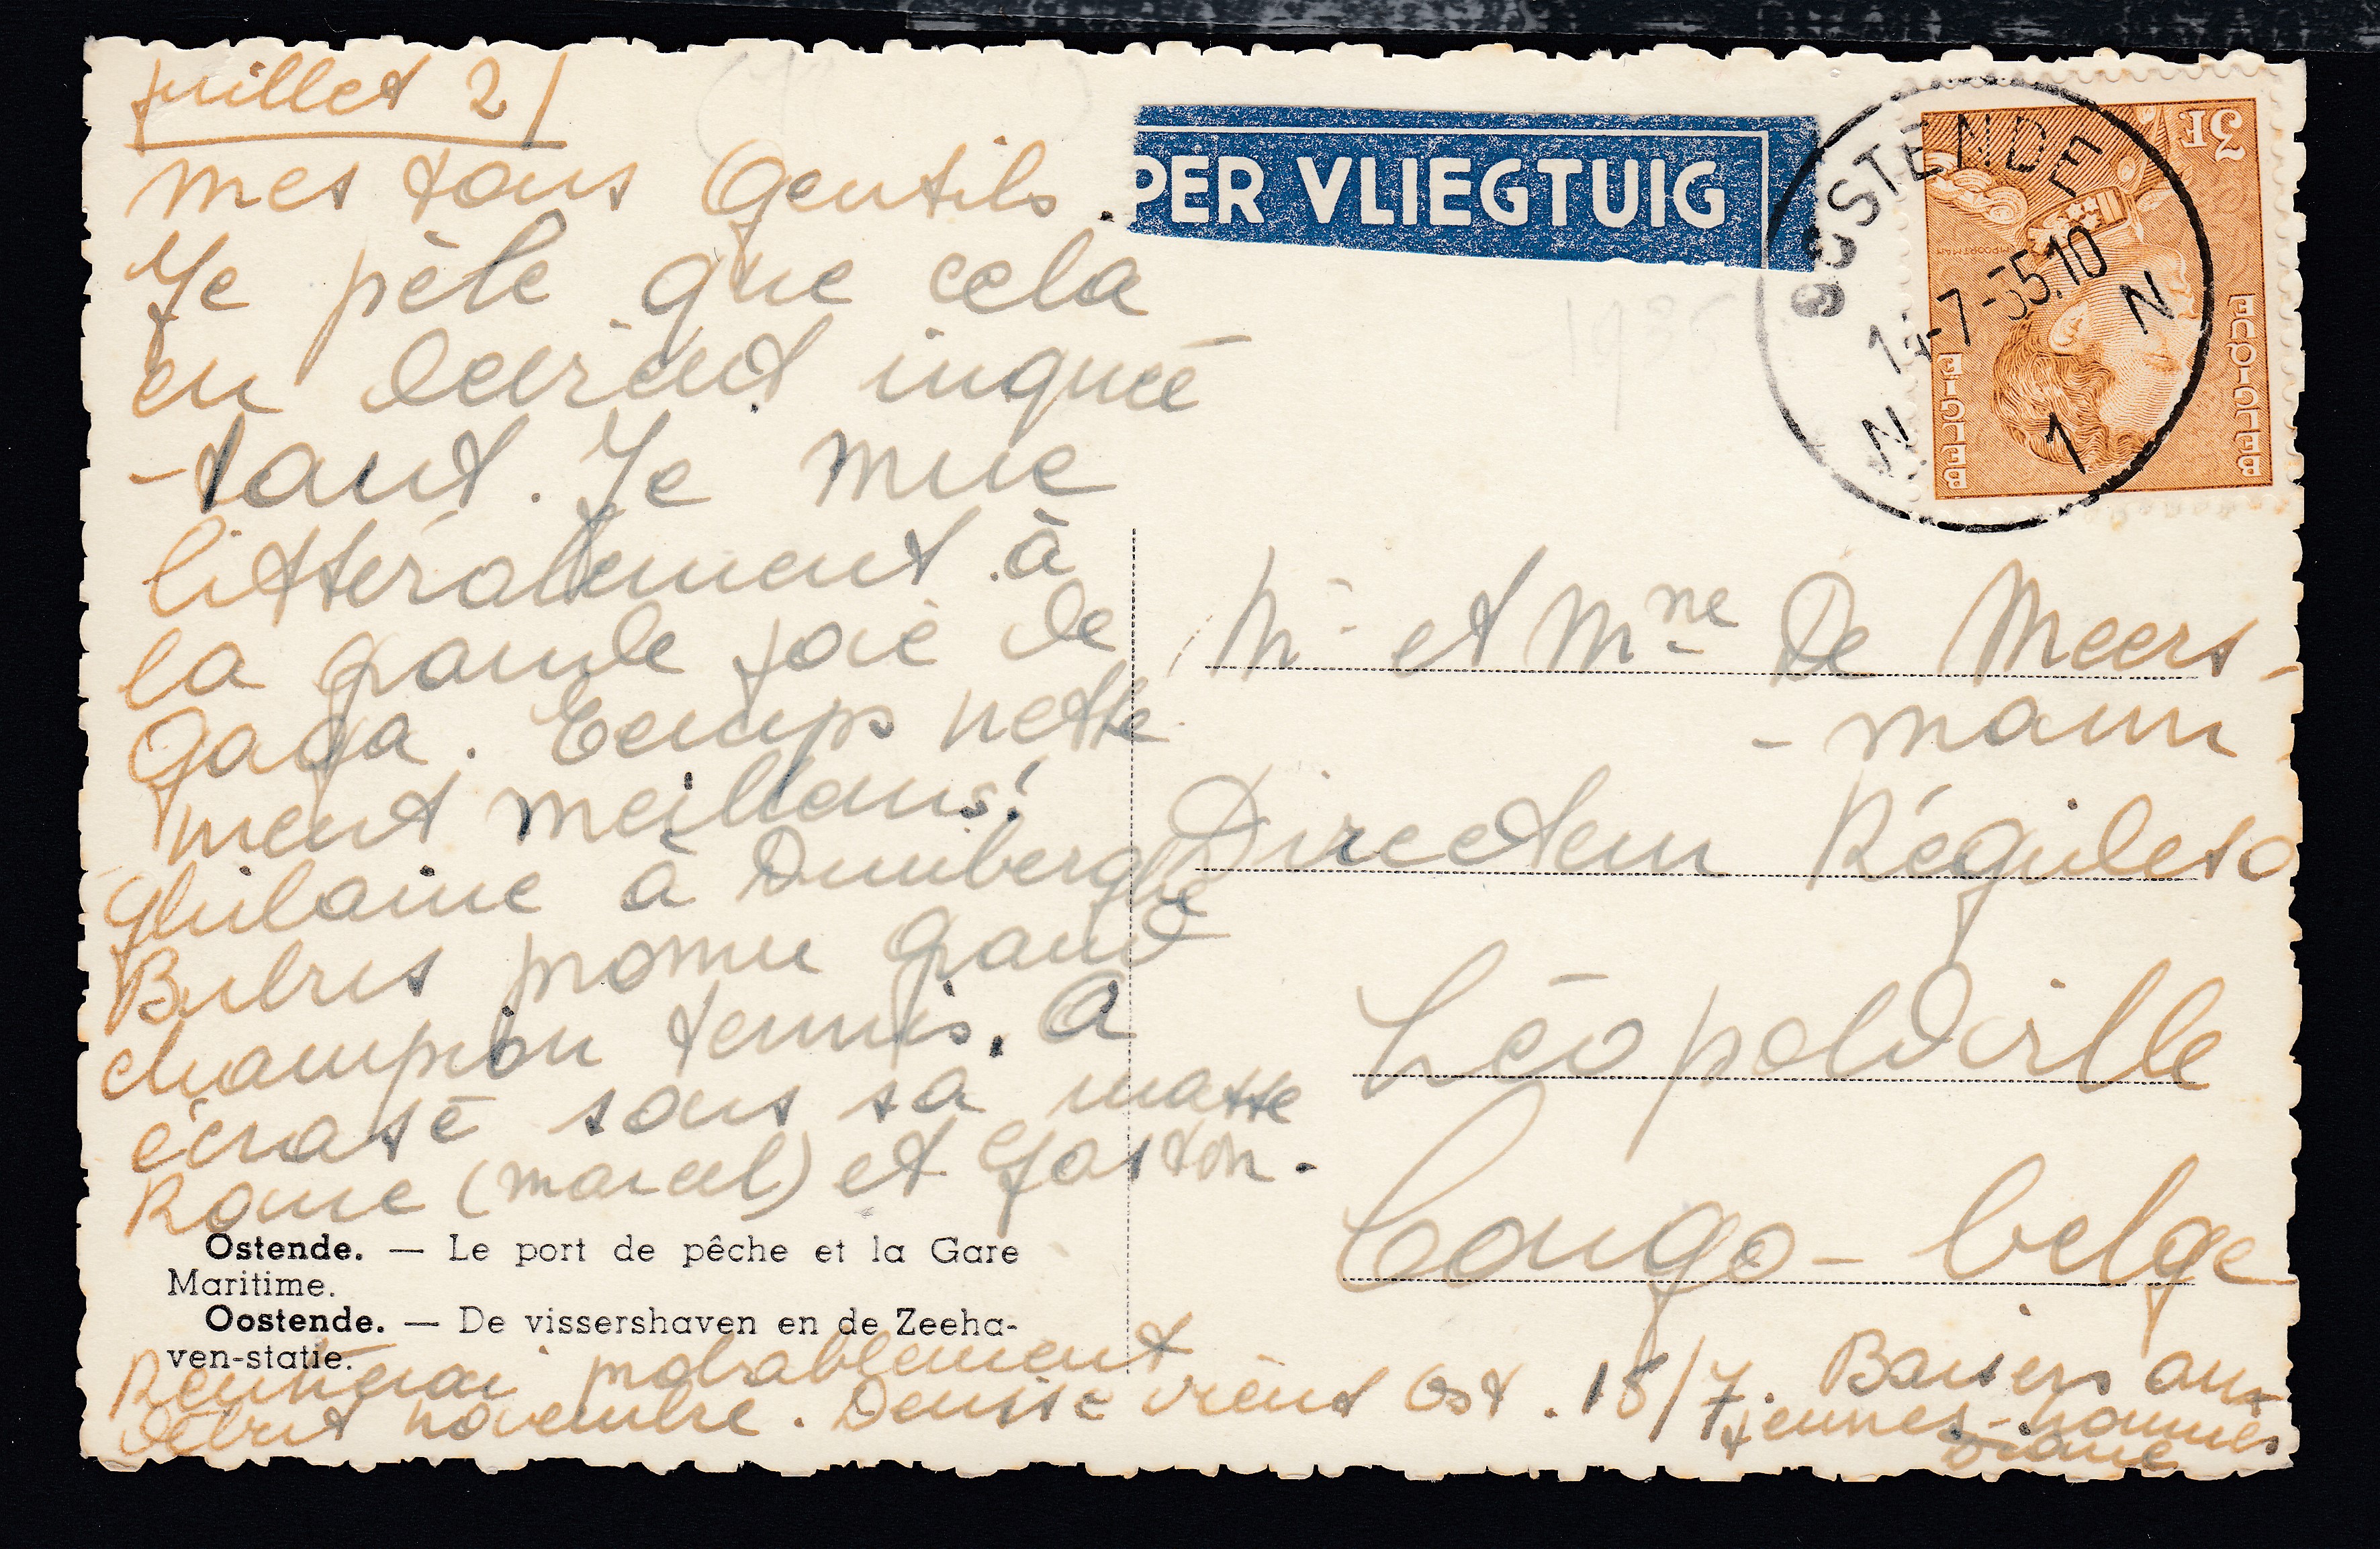 juillet 21
mes tous gentils.
Je pèle que cela
en devient inquié
-tant. Je mue
littéralement à
la grande joie de
Gaga. Temps nette
ment meilleurs!
Ghilaine à Duinberghe
promu grand
champion tennis. A
écrasé sous sa masse
(Marcel) et Gaston.
Ostende. — Le port de pêche et la Gare
Maritime.
Oostende. — De vissershaven en de Zeeha-
ven-statie.
Rentrerai probablement
début novembre. Denise vient Ost. 15/7. Baisers aux
jeunes-hommes
PER VLIEGTUIG
OOSTENDE
-7-55.10
N N
1
3F.
BELGIE
BELGIQUE
Mr et Mme De Meers-
-mann
Directeur Régideso
Léopoldville
Congo-belge